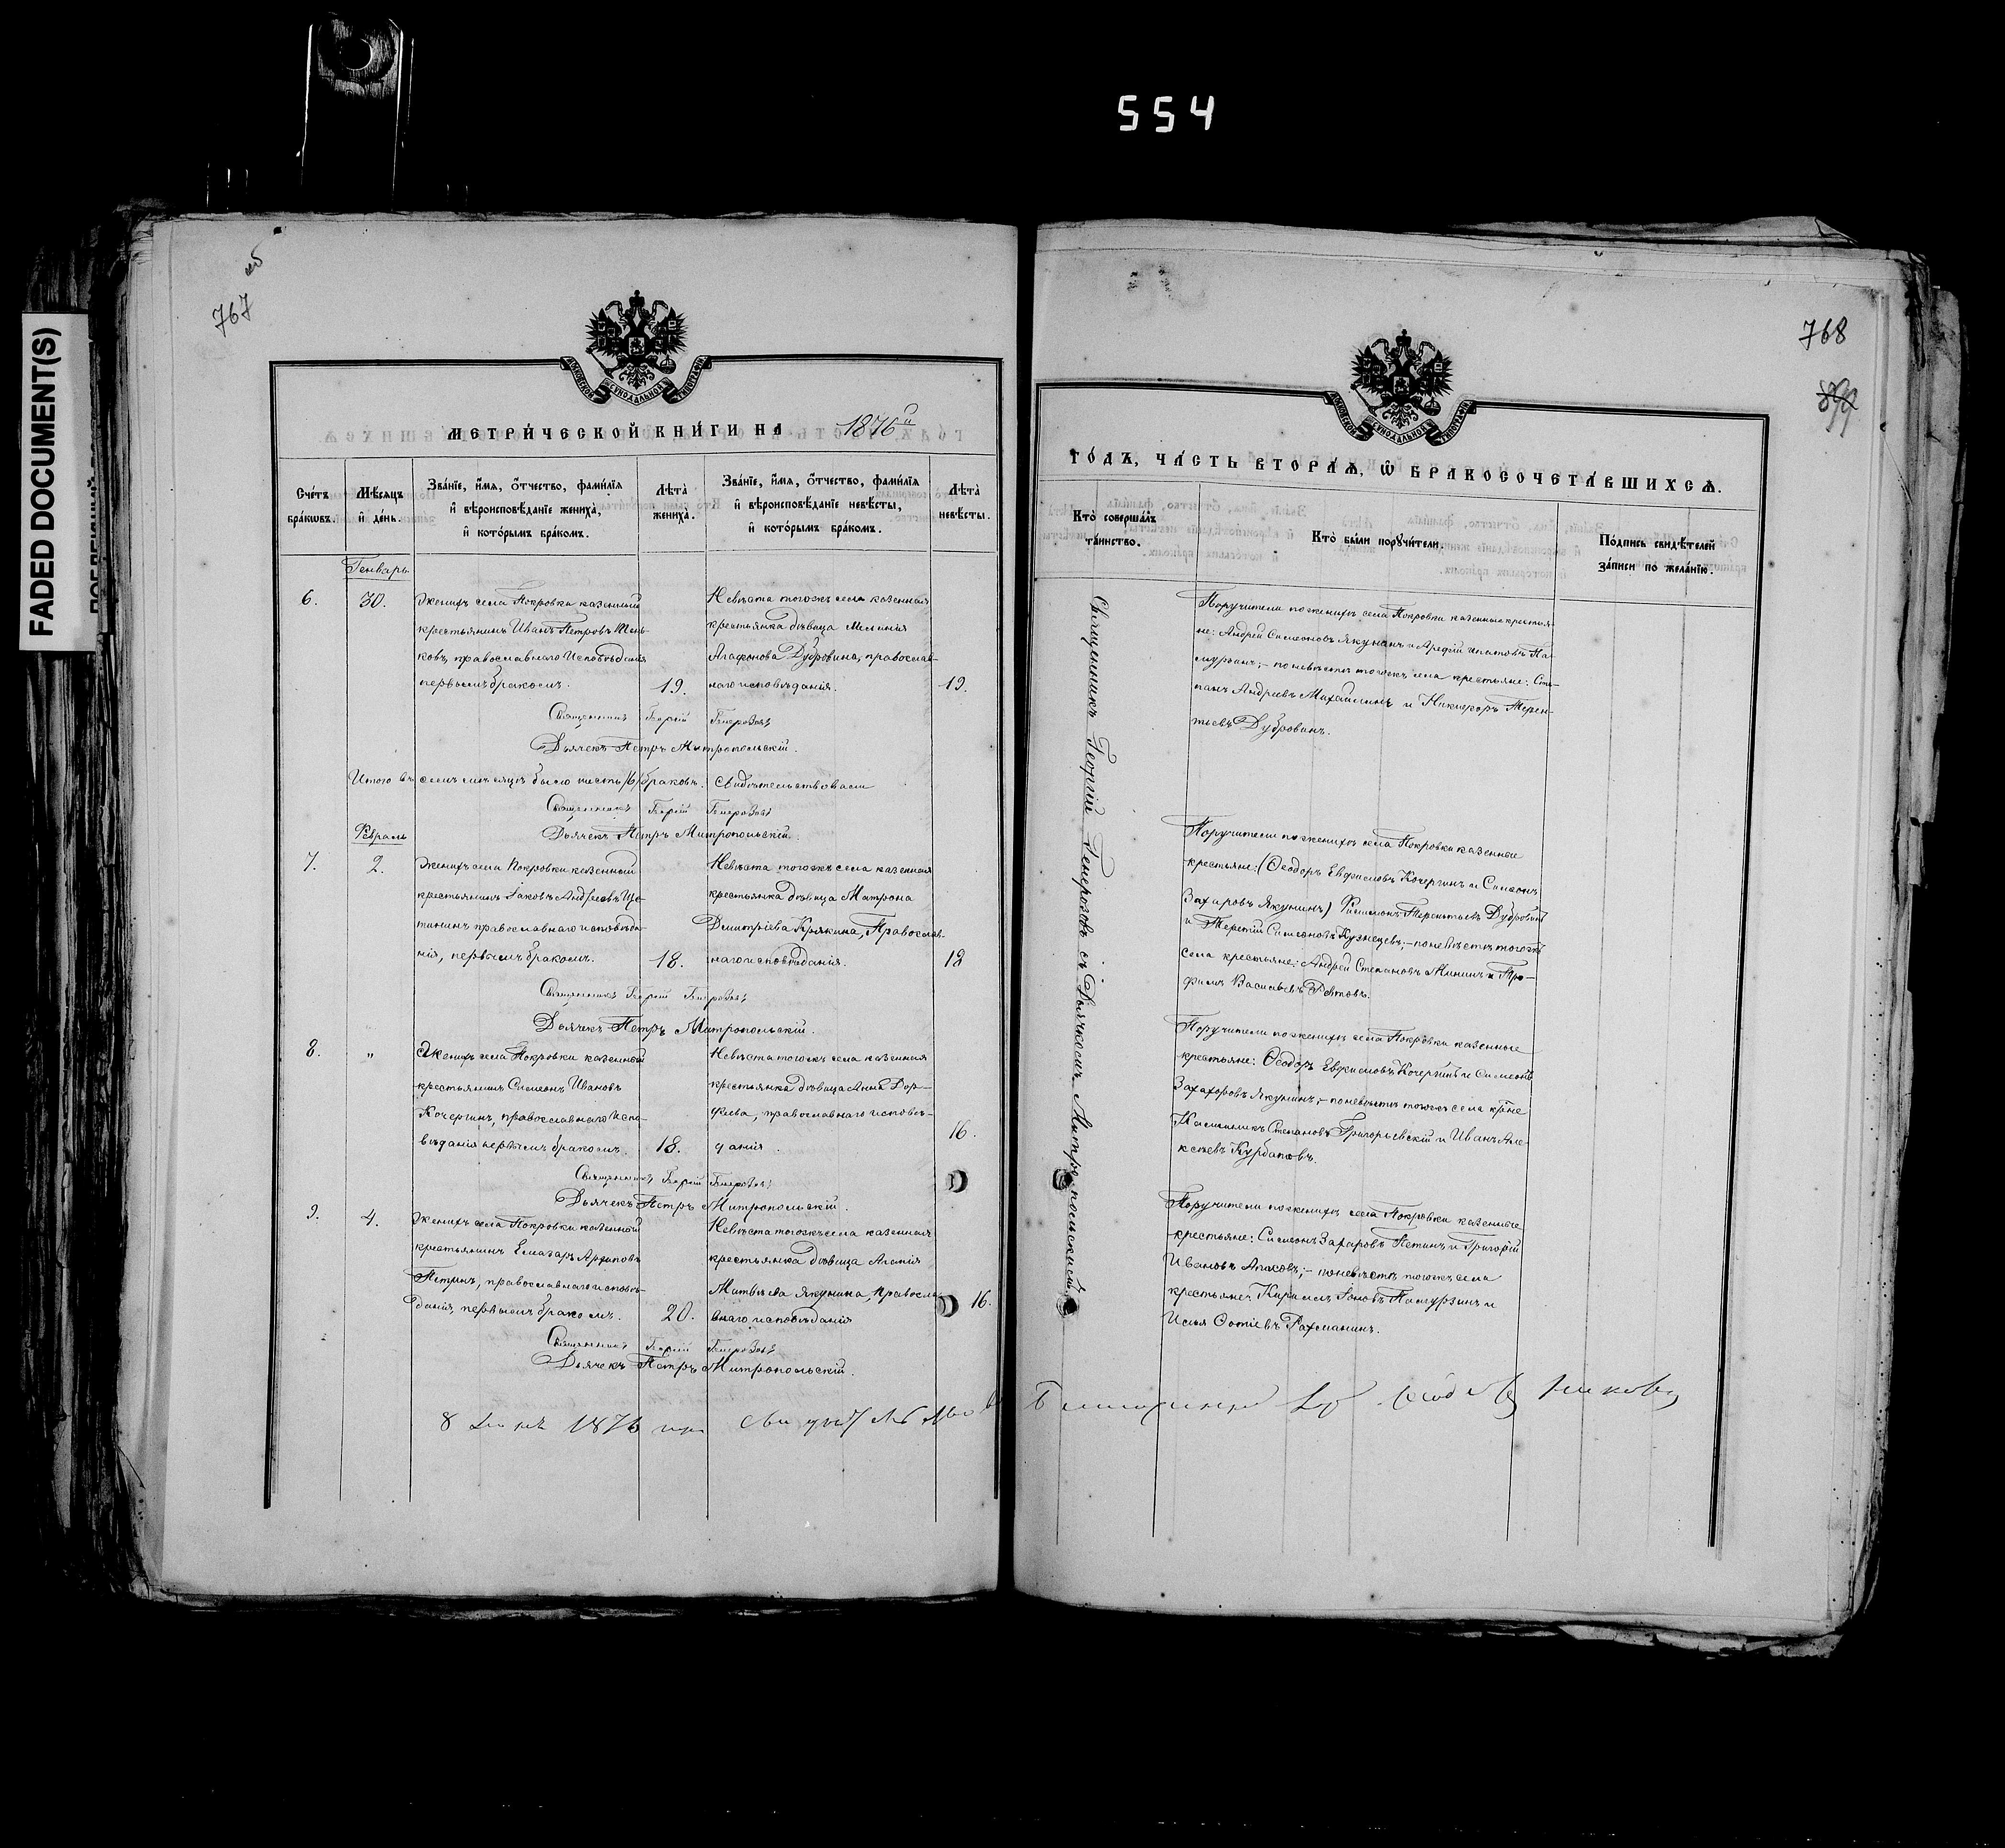 554
FADED DOCUMENT(S)
767
МЕТРИ́ЧЕСКОЙ КНИ́ГИ НА 1876й
Сче́тъ бра́кωвъ.
Мѣ́сяцъ и҆ де́нь.
Зва́нїе, и҆́мя, ѻ҆́тчество, фами́лїя
и҆ вѣроисповѣ́данїе жениха̀,
и҆ кото́рымъ бра́комъ.
Лѣ́та жениха̀.
Зва́нїе, и҆́мя, ѻ҆́тчество, фами́лїя
и҆ вѣроисповѣ́данїе невѣ́сты,
и҆ кото́рымъ бра́комъ.
Лѣ́та невѣ́сты.
Генварь
6.
30.
Женихъ села Покровки казенный
крестьянинъ Иванъ Петровъ Мень-
ковъ, православнаго Исповѣданія
первымъ бракомъ.
19.
Невѣста тогожъ села казенная
крестьянка дѣвица Меланія
Агафонова Дубровина, православ-
наго исповѣданія.
19.
Священникъ Георгій Генерозовъ
Дьячекъ Петръ Митропольскій.
Итого въ семъ мѣсяцѣ было шесть /6/ браковъ. Свидѣтельствовали
Священникъ Георгій Генерозовъ
Дьячекъ Петръ Митропольскій.
Февраль
7.
2.
Женихъ села Покровки казенный
крестьянинъ Іаковъ Андреевъ Ще-
тининъ православнаго исповѣда-
нія, первымъ бракомъ.
18.
Невѣста тогожъ села казенная
крестьянка дѣвица Матрона
Димитріева Крякина, Православ-
наго исповѣданія.
18
Священникъ Георгій Генерозовъ
Дьячекъ Петръ Митропольскій.
8.
"
Женихъ села Покровки казенный
крестьянинъ Симеонъ Ивановъ
Кочергинъ, православнаго Испо-
вѣданія первымъ бракомъ.
18.
Невѣста тогожъ села казенная
крестьянка дѣвица Анна Дор-
феева, православнаго исповѣ-
данія.
16.
Священникъ Георгій Генерозовъ
Дьячекъ Петръ Митропольскій.
9.
4.
Женихъ села Покровки казенный
крестьянинъ Елеазаръ Архиповъ
Петинъ, православнаго исповѣ-
данія, первымъ бракомъ.
20.
Невѣста тогожъ села казенная
крестьянка дѣвица Агапія
Матвѣева Якунина, правосла-
внаго исповѣданія
16.
Священникъ Георгій Генерозовъ
Дьячекъ Петръ Митропольскій.
8 1876
768
ГО́ДЪ, ЧА́СТЬ ВТОРА́Ѧ, Ѽ БРАКОСОЧЕТА́ВШИХСѦ.
Кто̀ соверша́лъ та́инство.
Кто̀ бы́ли поручи́тели.
По́дпись свидѣ́телей за́писи по жела́нїю.
Священникъ Георгій Генерозовъ съ Дьячкомъ Митропольскимъ
Поручители по женихѣ села Покровки казенные крестья-
не: Андрей Симеоновъ Якунинъ и Арефій Ипатовъ Па-
мурзинъ; – по невѣстѣ тогожъ села крестьяне: Сте-
панъ Андреевъ Михайлинъ и Никифоръ Терен-
тьевъ Дубровинъ.
Поручители по женихѣ села Покровки казенные
крестьяне: (Ѳеодоръ Евфимовъ Кочергинъ и Симеонъ
Захаровъ Якунинъ) Филимонъ Терентьевъ Дубровинъ
и Терентій Симеоновъ Кузнецовъ; – по невѣстѣ тогожъ
села крестьяне: Андрей Степановъ Мининъ и Тро-
фимъ Васильевъ
Поручители по женихѣ села Покровки казенные
крестьяне: Ѳеодоръ Евфимовъ Кочергинъ и Симеонъ
Захаровъ Якунинъ; – по невѣстѣ тогожъ села кр̃не
Калинникъ Степановъ Григорьевскій и Иванъ Але-
ксѣевъ Курбатовъ.
Поручители по женихѣ села Покровки казенные
крестьяне: Симеонъ Захаровъ Петинъ и Григорій
Ивановъ Апасовъ; – по невѣстѣ тогожъ села
крестьяне: Кириллъ Іоновъ Памурзинъ и
Илья Фотіевъ Рахманинъ.